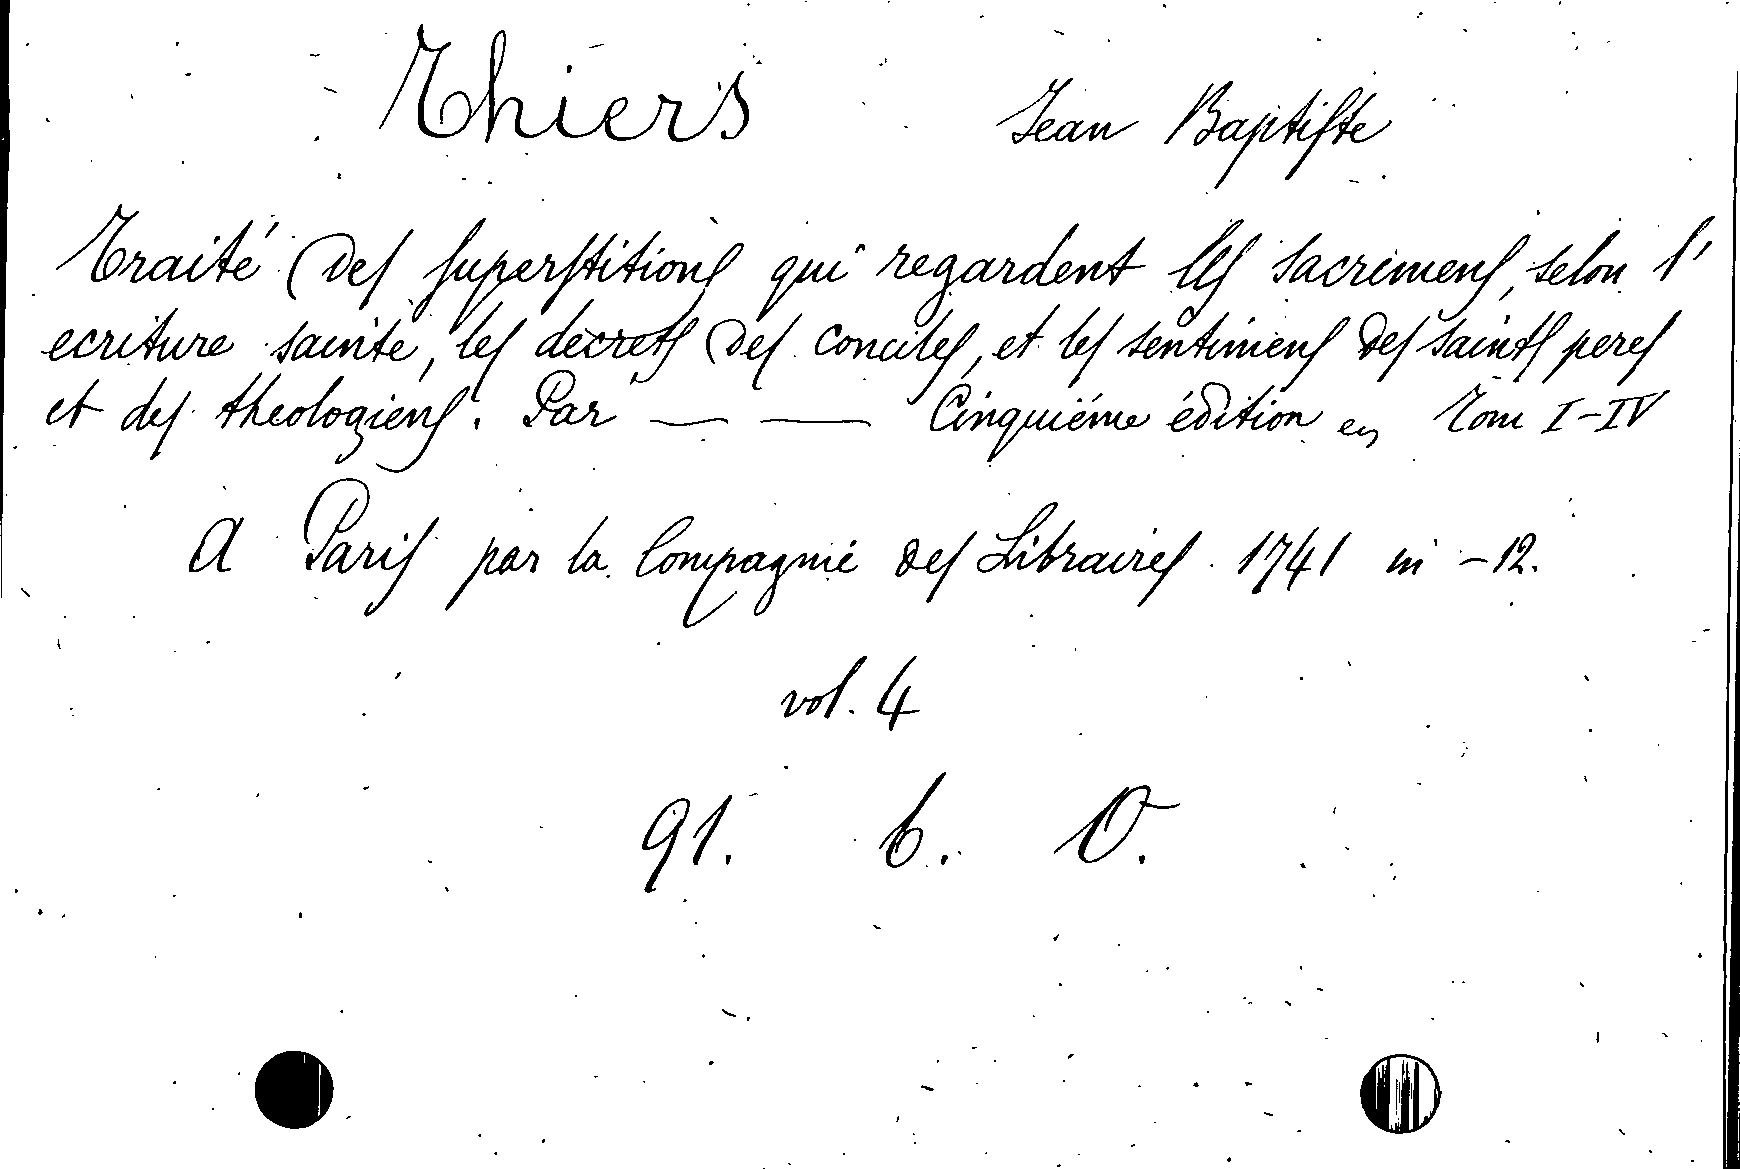 Thiers Jean Baptiste
Traité des superstitions qui regardent les sacremens, selon l'
ecriture sainte, les decrets des conciles, et les sentimens des saints peres
et des theologiens. Par — — Cinquiéme édition en Tom I-IV
A Paris par la Compagnie des Libraires 1741 in -12.
vol. 4
91. b. O.